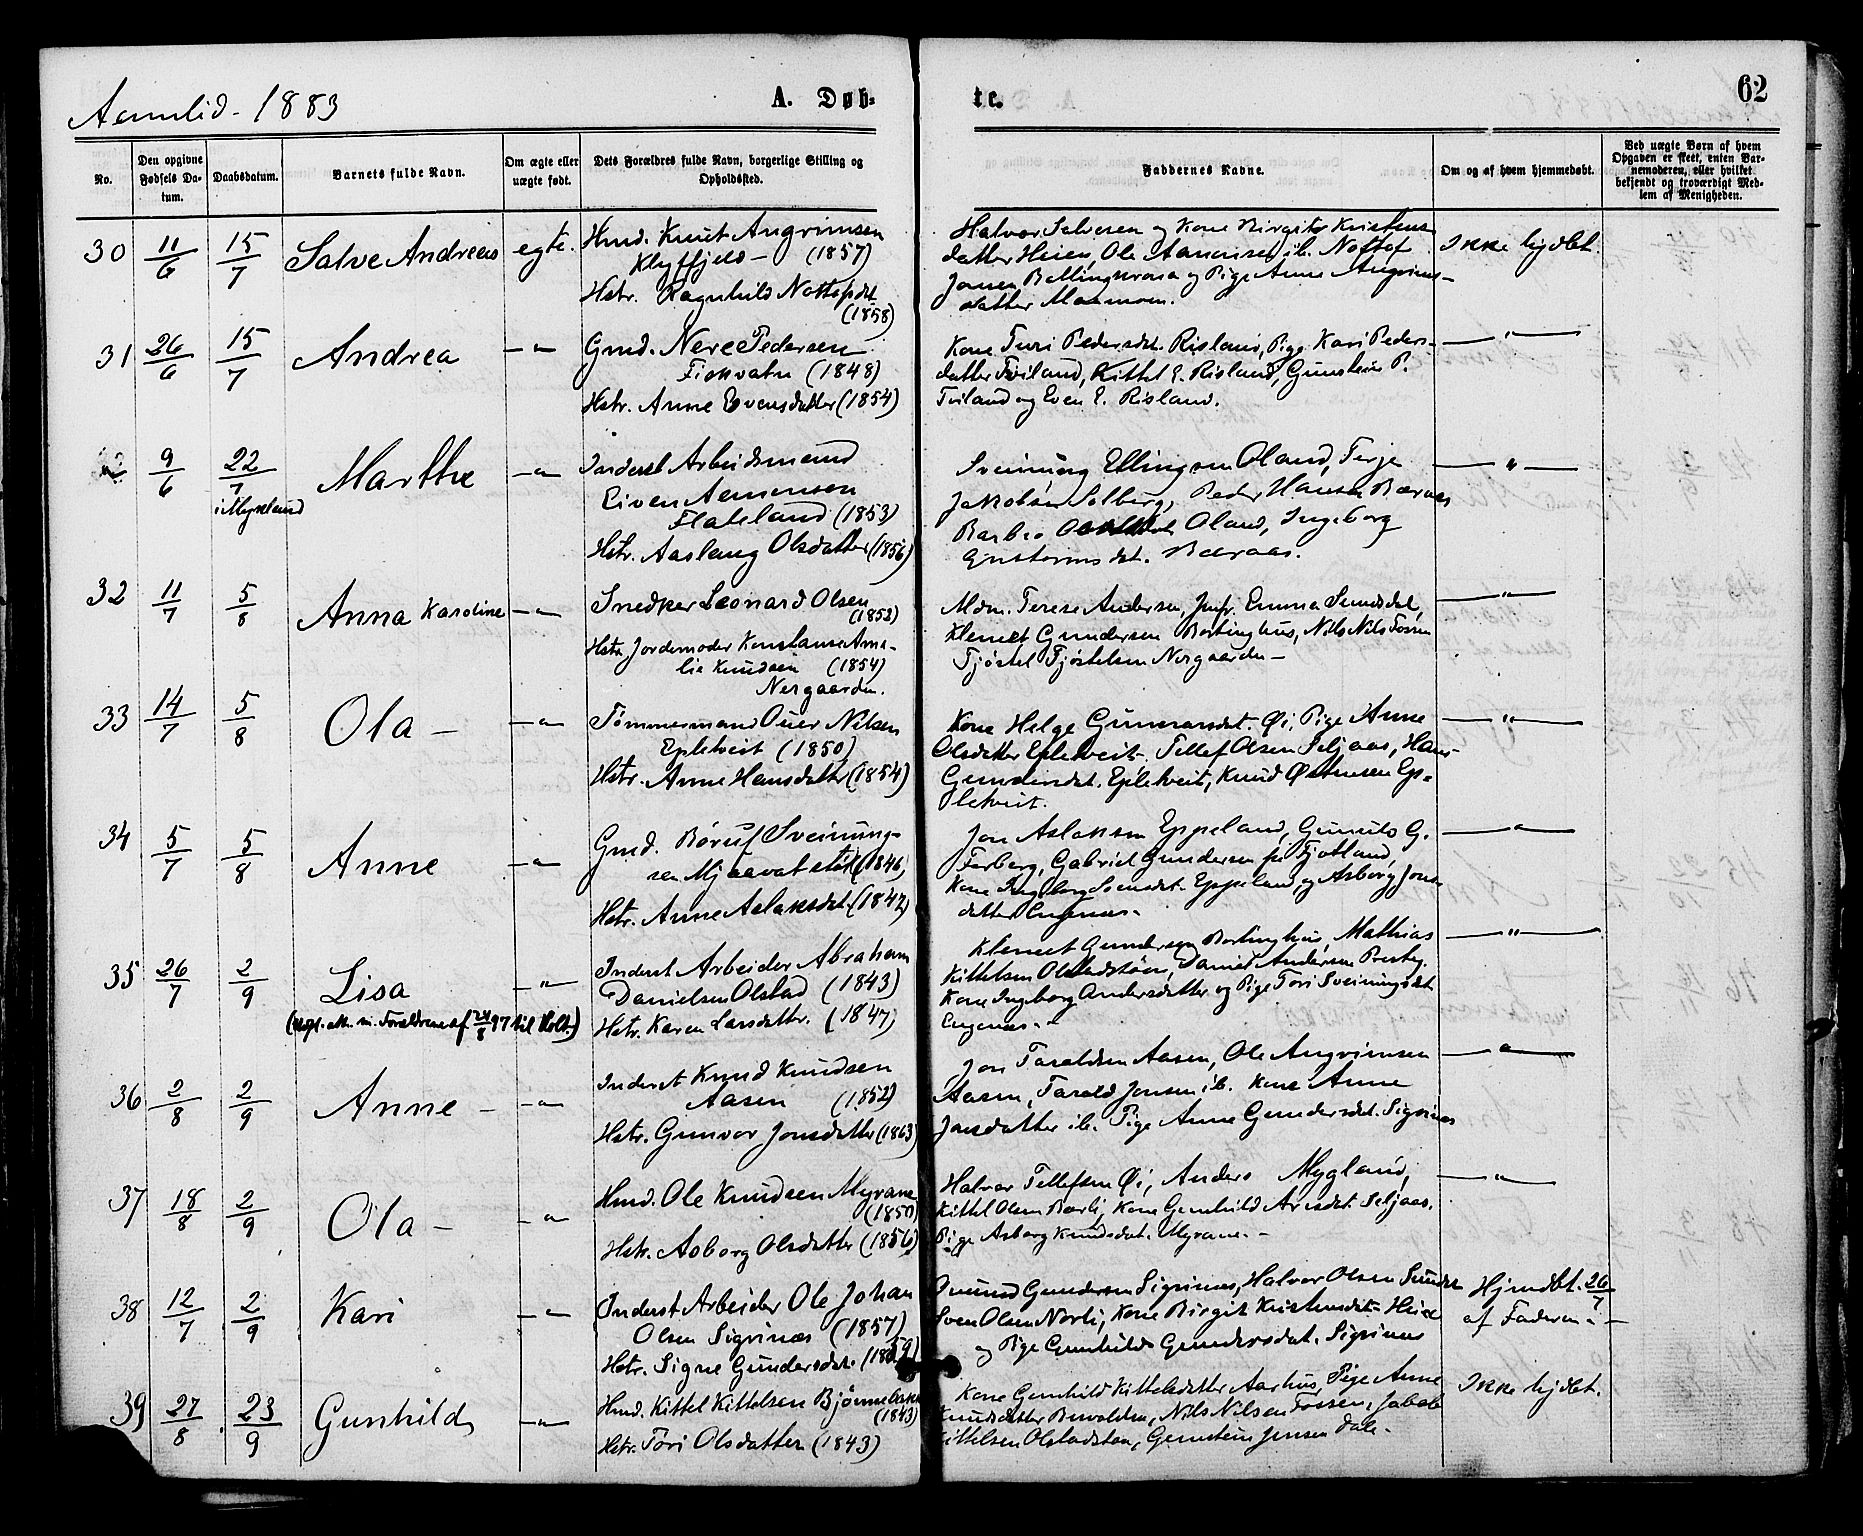 Aamlid - 1883
A. Døb-
te.
62
No.
Den opgivne Fødsels Datum.
Daabsdatum.
Barnets fulde Navn.
Om ægte eller uægte født.
Dets Forældres fulde Navn, borgerlige Stilling og Opholdssted.
Faddernes Navne.
Om og af hvem hjemmedøbt.
Ved uægte Børn af hvem Opgaven er skeet, enten Barnemoderen, eller hvilket bekjendt og troværdigt Medlem af Menigheden.
30 11/6 15/7 Salve Andreas egte.
Hmd. Knut Angrimsen
Klyffjeld - (1857)
Hstr. Ragnhild Nottopdt
(1858)
Halvor Salvesen og Kone Birgite Kristens
datter Heien, Ole Aanensen ib. Nottof
Jonsen og Pige Anne Angrims-
datter
Ikke hjdbt.
31 26/6 15/7 Andrea -"-
Gmd. Nere Pedersen
Fiskvatn (1848)
Hstr. Anne Evensdatter (1854)
Kone Turi Pedersdt. Risland, Pige Kari Peders-
datter Tviland, Kittel E. Risland, Gunstein P.
Tviland og Even E. Risland.
-"-
9/6 22/7 i Mykland Marthe -"-
Inderst Arbeidsmand
Eiven Aanensen
Flateland (1853)
Hstr. Aaslaug Olsdatter (1856)
Sveinung Ellingsen Oland, Terje
Jakobsen Solberg, Peder Hansen Bæraas
Barbro Oland, Ingeborg
Guttormsdt. Bæraas.
-"-
32 11/7 5/8 Anna Karoline -"-
Snedker Leonard Olsen
(1852)
Hstr. Jordemoder Konstanse Ama-
lie Knudsen (1854)
Nergaarden.
Mdm. Terese Andersen, Jmfr. Emma Sundsdal,
Klemet Gundersen Bortinghus, Nils Nils Fossen
Tjøstel Tjøstelsen Nergaarden -
-"-
33 14/7 5/8 Ola - -"-
Tømmermand Ouer Nilsen
Epletveit (1850)
Hstr. Anne Hansdatter (1854)
Kone Helge Gunnarsdt. Øi, Pige Anne
Olsdatter Epletveit, Tellef Olsen Seljaas, Hans
Gunnarsdt. Epletveit, Knud Østensen Ep-
letveit.
-"-
34 5/7 5/8 Anne -"-
Gmd. Børuf Sveinung-
sen Mjaavatsstøl (1846)
Hstr. Anne Aslaksdt. (1842)
Jon Aslaksen Eppeland, Gunuld G.
Ferberg, Gabriel Gundersen fr Fjotland,
Kone Ingeborg Svensdt. Eppeland, og Asborg Jons
datter Engenæs.
-"-
35 26/7 2/9 Lisa -"-
Inderst Arbeider Abraham
Danielsen Olstad (1843)
Hstr. Karen Larsdatter. (1847)
Klemet Gundersen Bortinghus, Mathias
Kittelsen Olstadstøen, Daniel Andersen Presby.
Kone Ingeborg Andersdatter og Pige Tori Sveinungsdt
Engenæs.
-"-
36 2/8 2/9 Anne - -"-
Inderst Knud Knudsen
Aasen (1852)
Hstr. Gunvor Jonsdatter (1863)
Jon Taraldsen Aasen, Ole Angrimsen
Aasen, Tarald Jonsen ib. Kone Anne
Jonsdatter ib. Pige Anne Gundersdt. Sigrinæs
-"-
37 18/8 2/9 Ola - -"-
Hmd. Ole Knudsen Myrane
(1850)
Hstr. Asborg Olsdatter (1856)
Halvor Tellefsen Øi, Anders Mygland,
Kittel Olsen Bærli, Kone Gunhild Aresdt. Seljaas.
Pige Asborg Knudsdt. Myrane. -
-"-
38 12/7 2/9 Kari -"-
Inderst Arbeider Ole Johan
Olsen Sigrinæs (1857)
Hstr. Signe Gundersdt.
Gundersen Sigrinæs, Halvor Olsen
Sven Olsen Norli, Kone Birgit Kristensdt. Heien
og Pige Gunhild Gundersdt. Sigrinæs
Hjmdbt. 26/7
af Faderen -
39 27/8 23/9 Gunhild -"-
Hmd. Kittel Kittelsen
(1843)
Hstr. Tori Olsdatter (1843)
Kone Gunhild Kittelsdatter Aarhus, Pige Anne
Knudsdatter, Nils Nilsen Fossen, Jakob
Kittelsen Olstadstøen, Gunstein Jensen Dale.
Ikke hjdbt.